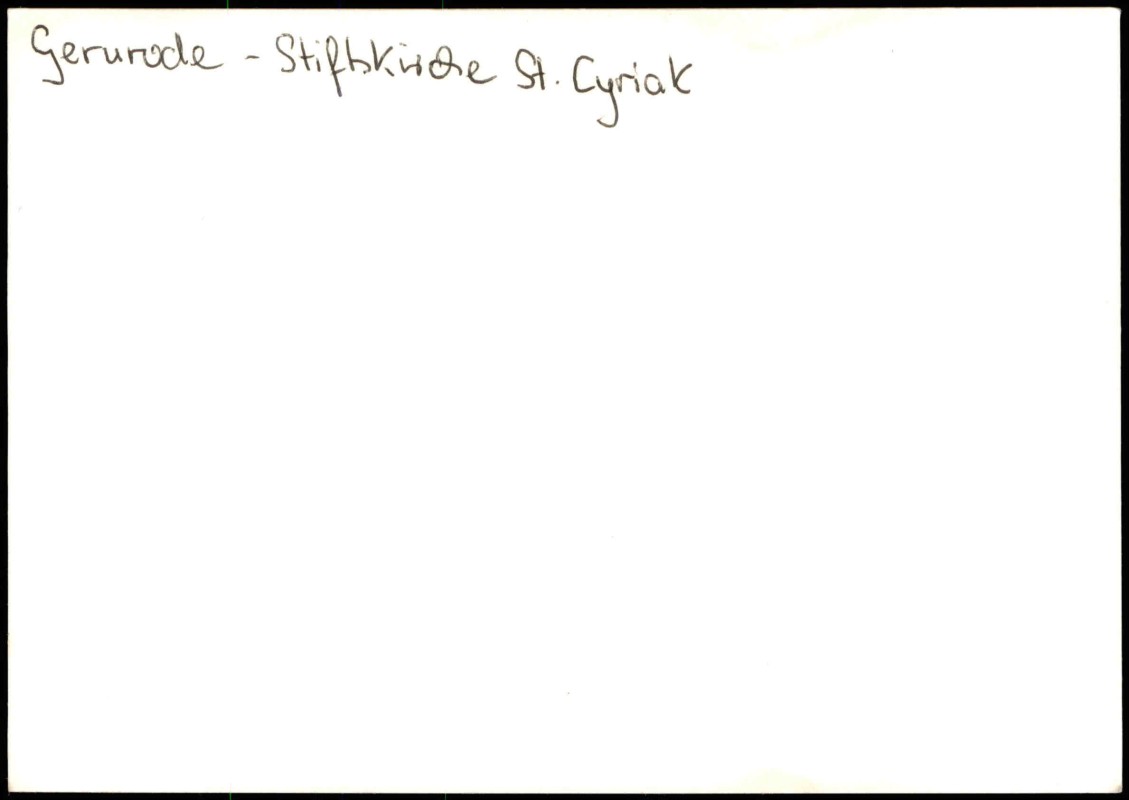 Gernrode - Stiftskirche St. Cyriak